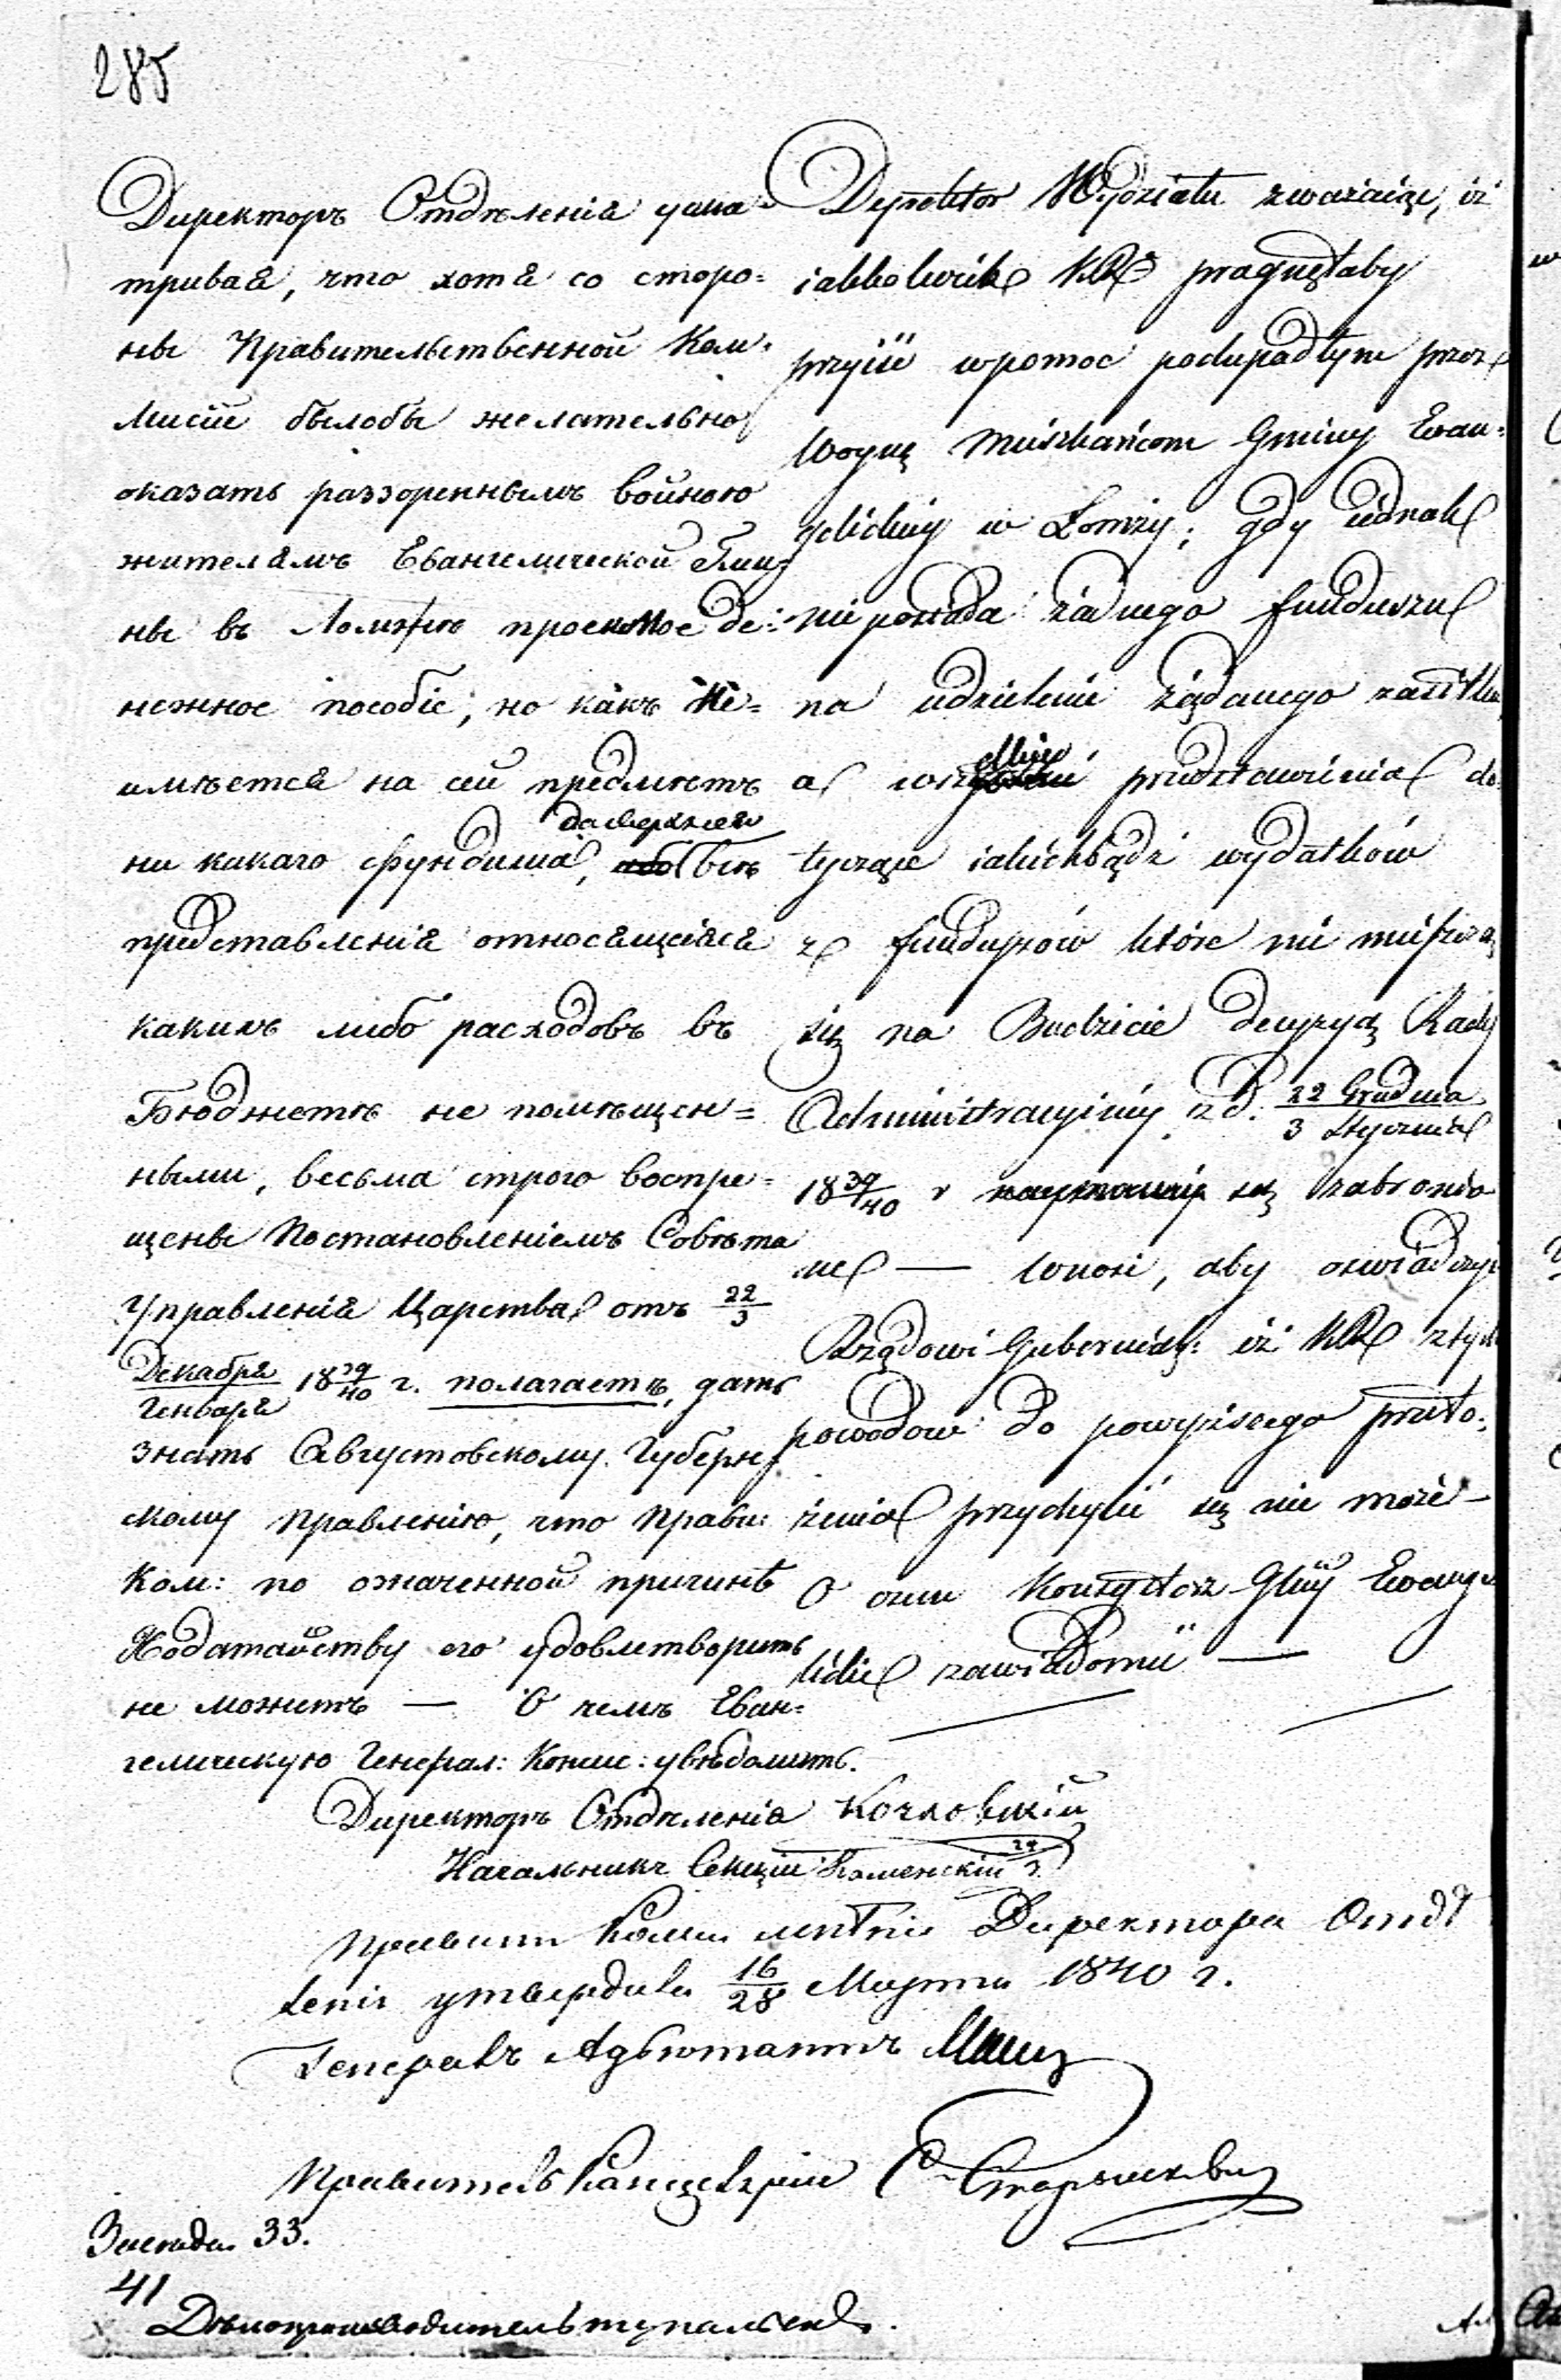 285
Директоръ Отдѣленія усма-
тривая, что хотя со сторо=
ны Правительственной Ком-
мисіи былобы желательно
оказать раззореннымъ войною
жителямъ Евангелической Гми-
ны въ Ломжѣ просимое де:
нежное пособіе, но какъ не=
имѣется на сей предметъ
ни какаго фундуша, всѣ
представленія относящіяся
какихъ либо расходовъ въ
Бюджетѣ не помѣщен=
ными, весьма строго воспре=
щены Постановленіемъ Совѣта
Управленія Царства отъ 22/3
Декабря/Генваря 18 39/40 г. полагаетъ, дать
знать Августовскому Губерн-
скому Правленію, что Прави:
Ком: по означенной причинѣ
Ходатайству его удовлетворить
не можетъ — О чемъ Еван=
гелическую Генерал: Конс: увѣдомить.
Dyrektor Wydziału zważaiąc, iż
iakkolwiek KR pragnęłaby
przyiść w pomoc podupadłym przez
Woynę Mieszkańcom Gminy Ewan=
gielickiey w Łomży; gdy iednak
nie posiada żadnego funduszu
na udzielenie żądanego zasiłku,
a wszelkie przedstawienia do
tyczące iakichbądź wydatków
z funduszów które nie mieszczą
się na Budżecie decyzyą Rady
Administracyiney z d. 22 Grudnia/3 Stycznia
18 39/40 r są zabronio
ne — wnosi, aby oświadczyć
Rządowi Gubernial: iż KR z tych
powodów do powyższego przeło-
żenia przychylić się nie może —
O czem Konsystorz Glny Ewangie
licki zawiadomić —
Директоръ Отдѣленія
Начальникъ Секціи Каменскій
Правит. Комм. мнѣніе Директора Отдѣ
ленія утвердила 16/28 Марта 1840 г.
Генералъ Адъютантъ
Правитель Канцеляріи
33.
41
Дѣлопроизводитель